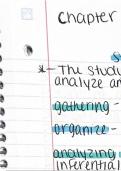 Chapter
* - The stud
analyze a
gathering -
organize -
analyzing
inferential